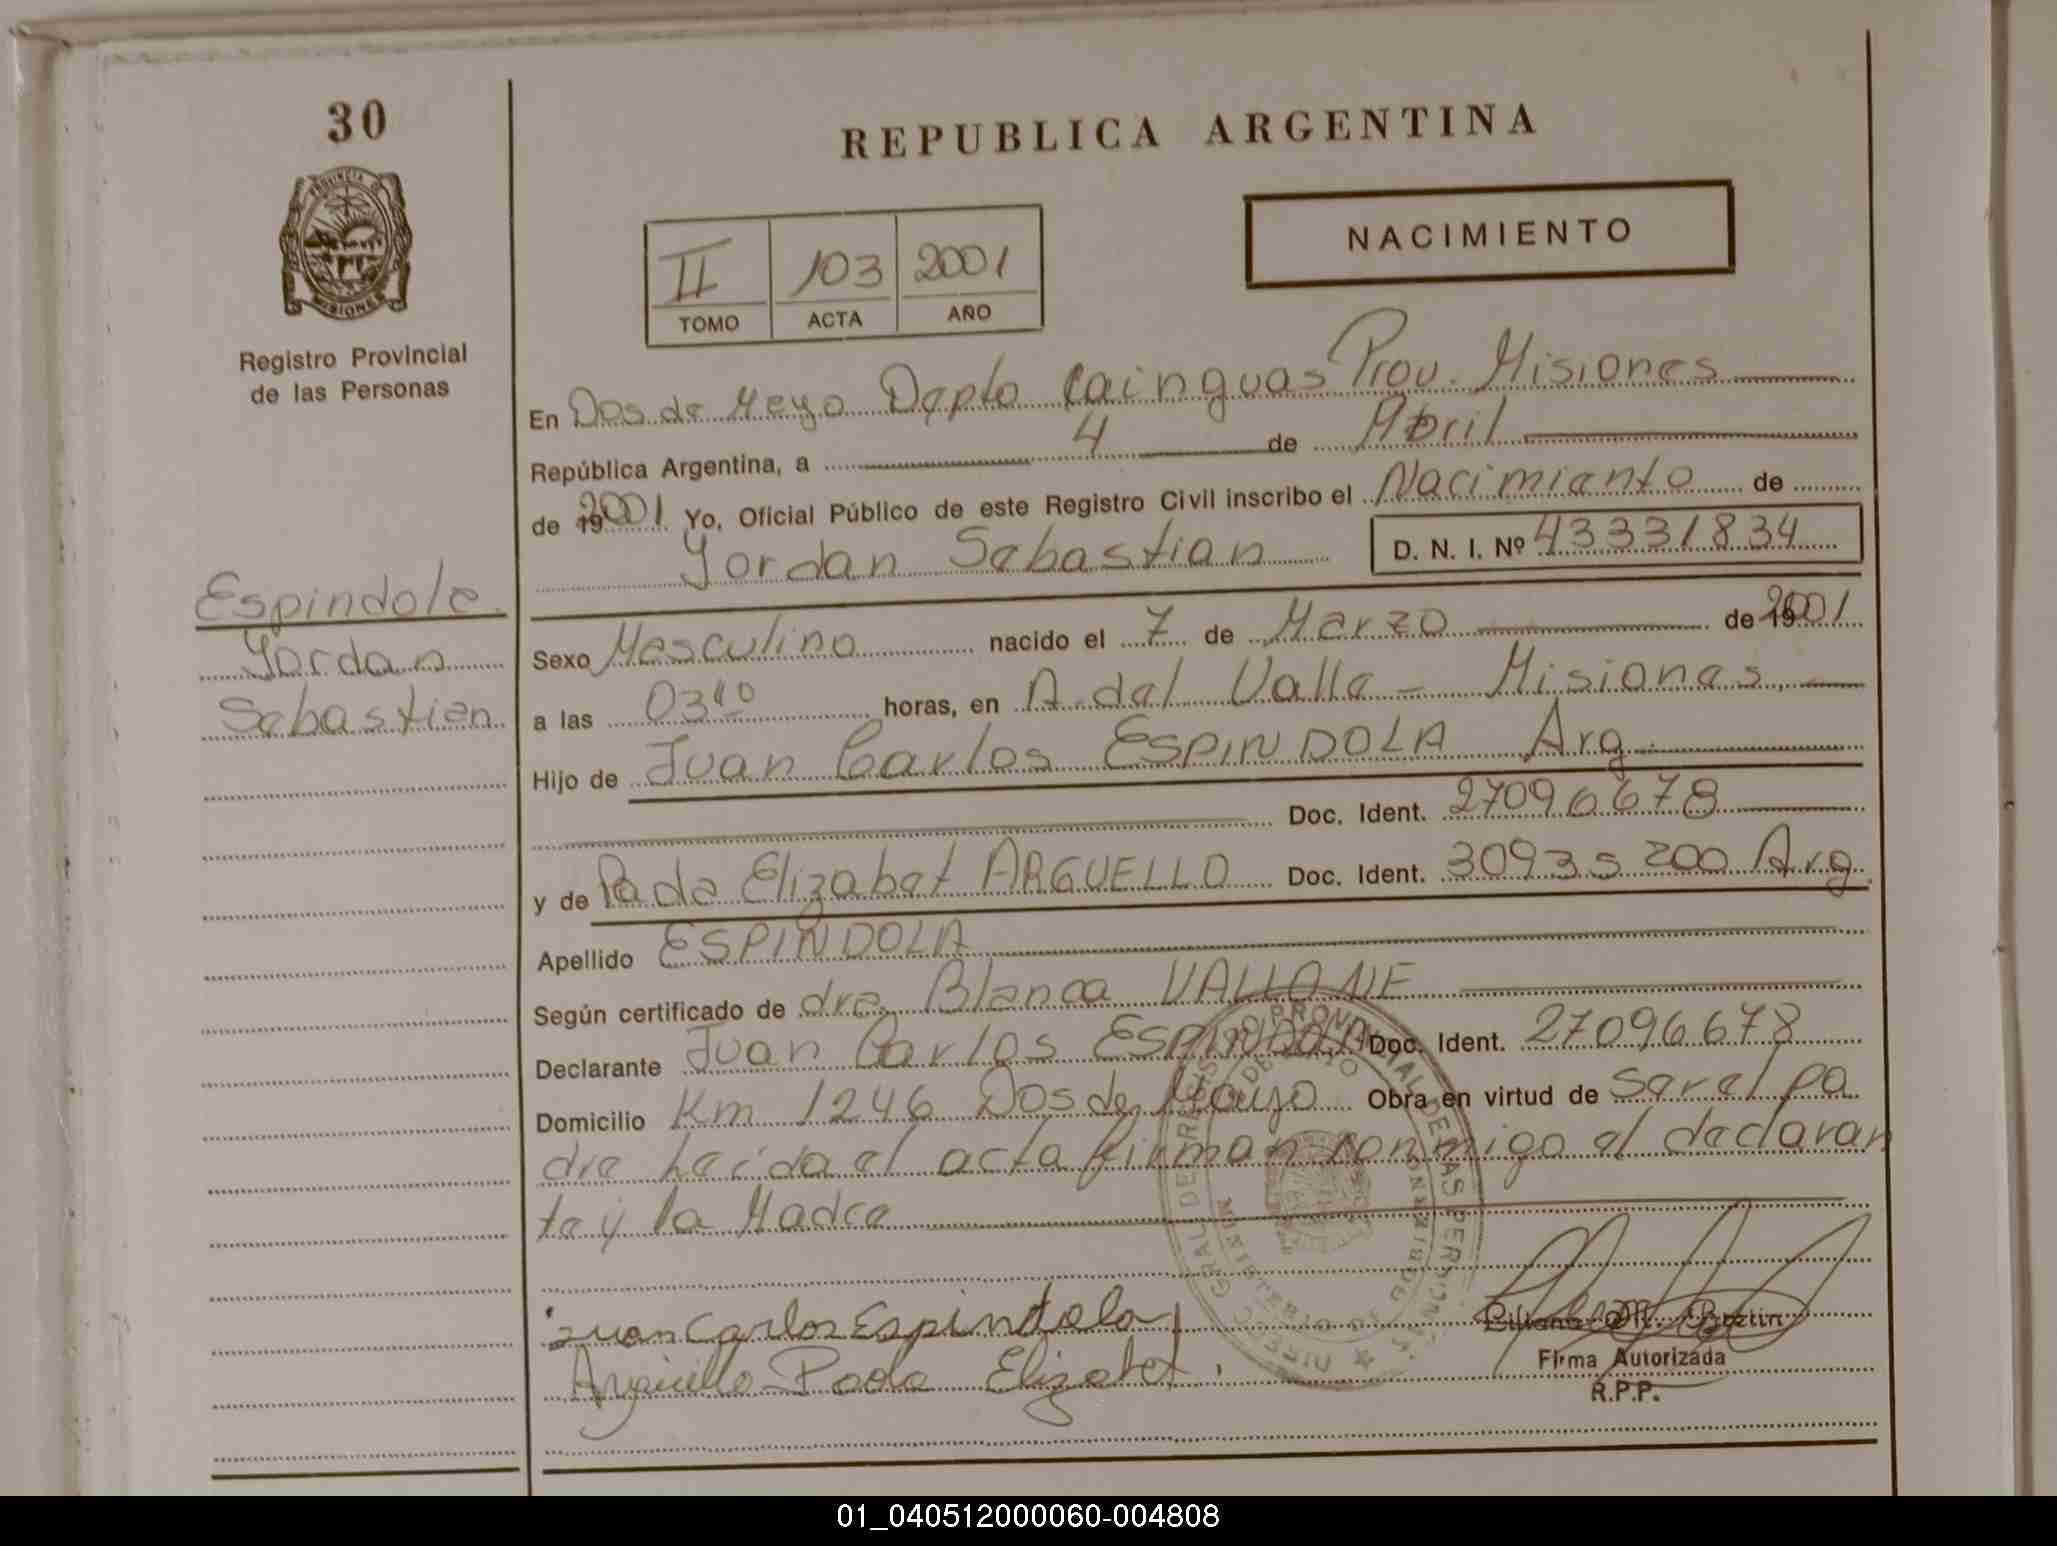 30
REPUBLICA ARGENTINA
NACIMIENTO
II 103 2001
TOMO ACTA AÑO
Registro Provincial
de las Personas
En Dos de Mayo Depto Cainguas Prov. Misiones
República Argentina, a 4 de Abril
de 2001 Yo, Oficial Público de este Registro Civil inscribo el Nacimiento de
Yordan Sebastian D. N. I. Nº 43331834
Espindola
Yordan
Sebastian
Sexo Masculino nacido el 7 de Marzo de 2001
a las 03¹⁰ horas, en A. del Valle - Misiones
Hijo de Juan Carlos ESPINDOLA Arg
Doc. Ident. 27096678
y de Paola Elizabet ARGUELLO Doc. Ident. 30935200 Arg.
Apellido ESPINDOLA
Según certificado de dra. Blanca VALLONE
Declarante Juan Carlos ESPINDOLA Doc. Ident. 27096678
Domicilio Km 1246 Dos de Mayo Obra en virtud de ser el pa
dre Leida el acta firman conmigo el declaran
te y la Madre
Juan Carlos Espindola
Arguello Paola Elizabet
Liliana M. Bretin
Firma Autorizada
R.P.P.
01_040512000060-004808